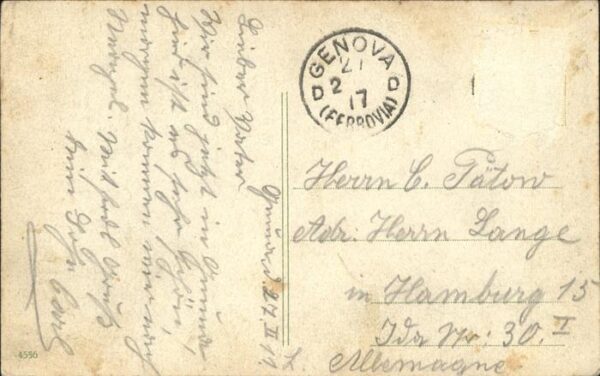 Lieber Vater
Wir sind jetzt in Genua
hier ist es sehr schön,
morgen kommen wir nach
Mit
dein Sohn Carl
GENOVA
27
D 2 D
17
(FERROVIA)
Herrn C. Pätow
Adr. Herrn Lange
in Hamburg 15
Ida Str: 30. I
Allemagne
4556